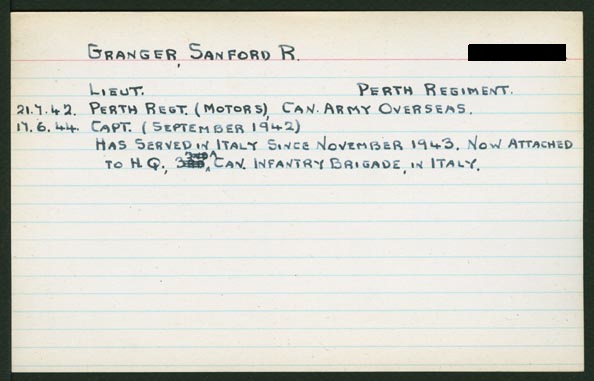 GRANGER, SANFORD R.
LIEUT. PERTH REGIMENT.
21.7.42. PERTH REGT. (MOTORS), CAN. ARMY OVERSEAS.
17.6.44. CAPT. (SEPTEMBER 1942)
HAS SERVED IN ITALY SINCE NOVEMBER 1943. NOW ATTACHED
TO H.Q., CAN. INFANTRY BRIGADE, IN ITALY.